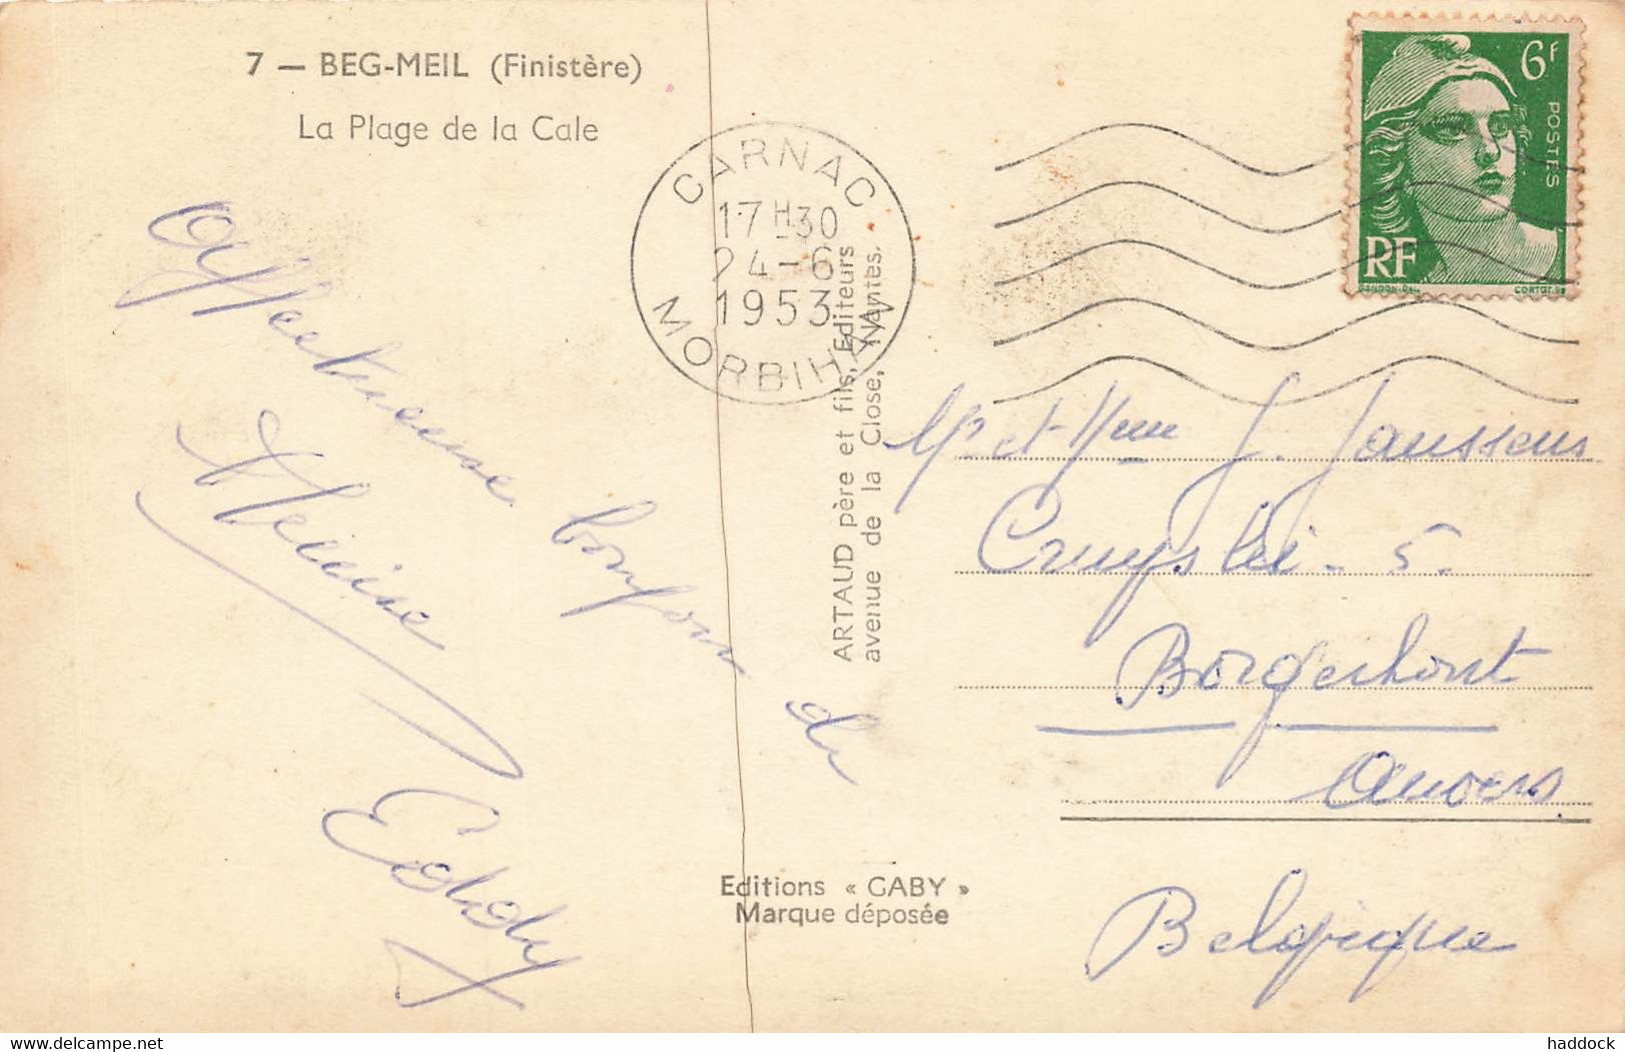 7 — BEG-MEIL (Finistère)
La Plage de la Cale
6F
POSTES
RF
CARNAC
17H30
24-6
1953
MORBIHAN
ARTAUD père et fils, Editeurs
avenue de la Close, Nantes.
Affectueuse bonjour de
Eddy
Mr et Mme J. Janssens
Cruyslei - 5.
Borgerhout
Anvers
Belgique
Editions « GABY »
Marque déposée
Delcampe.net
haddock